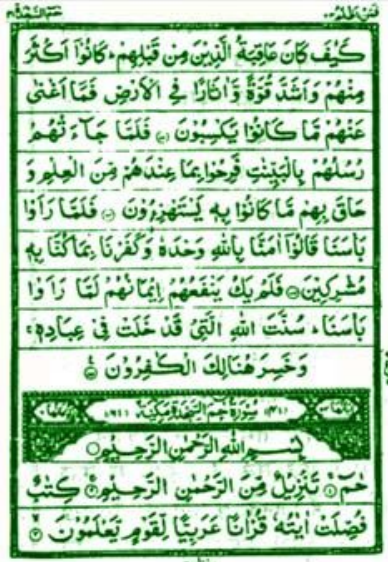 فمن اظلم ٢٤
حٰمٓ السجدة ٤١
كَيْفَ كَانَ عَاقِبَةُ الَّذِيْنَ مِنْ قَبْلِهِمْ ؕ كَانُوْۤا اَكْثَرَ
مِنْهُمْ وَاَشَدَّ قُوَّةً وَّاٰثَارًا فِى الْاَرْضِ فَمَاۤ اَغْنٰى
عَنْهُمْ مَّا كَانُوْا يَكْسِبُوْنَ فَلَمَّا جَآءَتْهُمْ
رُسُلُهُمْ بِالْبَيِّنٰتِ فَرِحُوْا بِمَا عِنْدَهُمْ مِّنَ الْعِلْمِ وَ
حَاقَ بِهِمْ مَّا كَانُوْا بِهٖ يَسْتَهْزِءُوْنَ فَلَمَّا رَاَوْا
بَاْسَنَا قَالُوْۤا اٰمَنَّا بِاللّٰهِ وَحْدَهٗ وَكَفَرْنَا بِمَا كُنَّا بِهٖ
مُشْرِكِيْنَ فَلَمْ يَكُ يَنْفَعُهُمْ اِيْمَانُهُمْ لَمَّا رَاَوْا
بَاْسَنَا ؕ سُنَّتَ اللّٰهِ الَّتِىْ قَدْ خَلَتْ فِىْ عِبَادِهٖ ۚ
وَخَسِرَ هُنَالِكَ الْكٰفِرُوْنَ
سُوْرَةُ حٰمٓ السَّجْدَةِ مَكِّيَّةٌ
بِسْمِ اللّٰهِ الرَّحْمٰنِ الرَّحِيْمِ
حٰمٓ ۚ تَنْزِيْلٌ مِّنَ الرَّحْمٰنِ الرَّحِيْمِ ۚ كِتٰبٌ
فُصِّلَتْ اٰيٰتُهٗ قُرْاٰنًا عَرَبِيًّا لِّقَوْمٍ يَّعْلَمُوْنَ